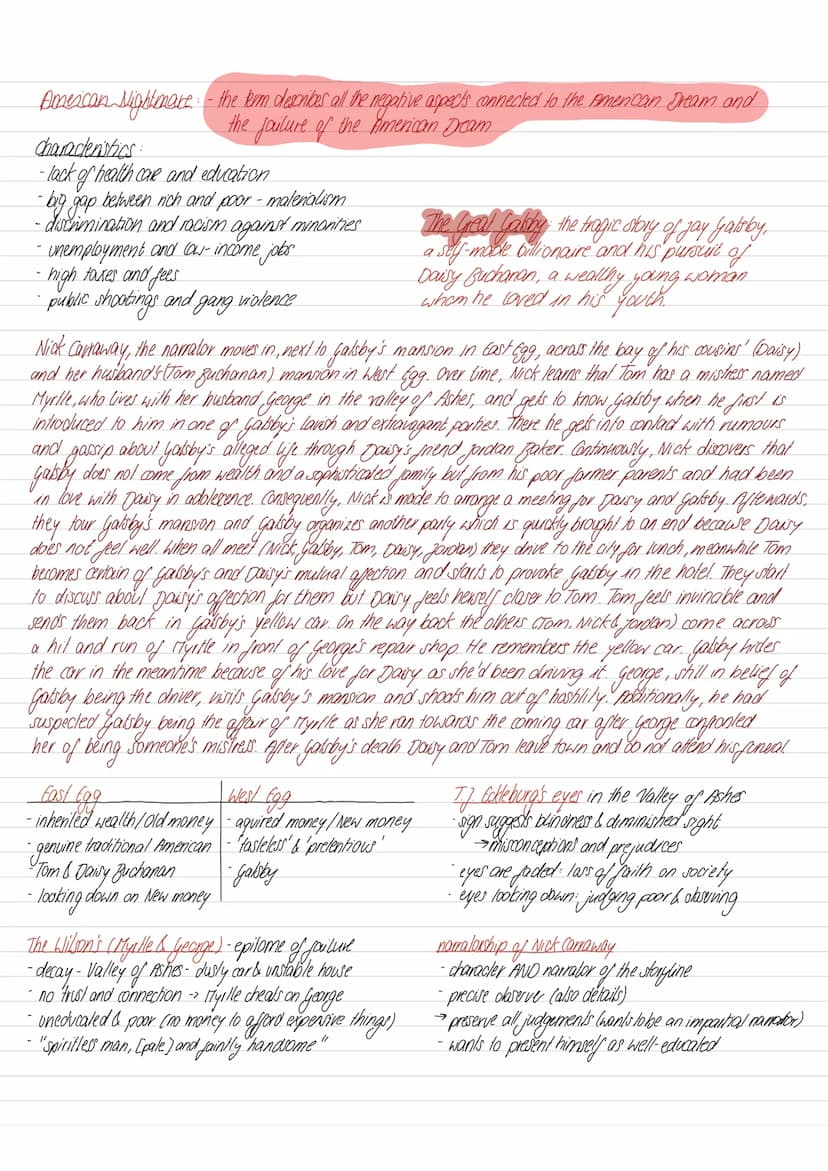 American Nightmare: - the term describes all the negative aspects connected to the American Dream and
the failure of the American Dream
characteristics:
- lack of health care and education
- big gap between rich and poor - materialism
- discrimination and racism against minorities
- unemployment and low-income jobs
- high taxes and fees
- public shootings and gang violence
The Great Gatsby: the tragic story of Jay Gatsby,
a self-made billionaire and his pursuit of
Daisy Buchanan, a wealthy young woman
whom he loved in his youth.
Nick Carraway, the narrator moves in, next to Gatsby's mansion in East Egg, across the bay of his cousins' (Daisy)
and her husband's (Tom Buchanan) mansion in West Egg. Over time, Nick learns that Tom has a mistress named
Myrtle, who lives with her husband George in the valley of Ashes, and gets to know Gatsby when he first is
introduced to him in one of Gatsby's lavish and extravagant parties. There he gets into contact with rumours
and gossip about Gatsby's alleged life through Daisy's friend Jordan Baker. Continuously, Nick discovers that
Gatsby does not come from wealth and a sophisticated family but from his poor farmer parents and had been
in love with Daisy in adolecence. Consequently, Nick is made to arrange a meeting for Daisy and Gatsby. Afterwards,
they tour Gatsby's mansion and Gatsby organizes another party which is quickly brought to an end because Daisy
does not feel well. When all meet (Nick, Gatsby, Tom, Daisy, Jordan) they drive to the city for lunch, meanwhile Tom
becomes certain of Gatsby's and Daisy's mutual affection and starts to provoke Gatsby in the hotel. They start
to discuss about Daisy's affection for them but Daisy feels herself closer to Tom. Tom feels invincible and
sends them back in Gatsby's yellow car. On the way back the others (Tom, Nick & Jordan) come across
a hit and run of Myrtle in front of George's repair shop. He remembers the yellow car. Gatsby hides
the car in the meantime because of his love for Daisy as she'd been driving it. George, still in belief of
Gatsby being the driver, visits Gatsby's mansion and shoots him out of hostility. Additionally, he had
suspected Gatsby being the affair of Myrtle as she ran towards the coming car after George confronted
her of being someone's mistress. After Gatsby's death Daisy and Tom leave town and do not attend his funeral
East Egg
- inherited wealth/Old money
- genuine traditional American
- Tom & Daisy Buchanan
- looking down on New money
West Egg
- aquired money/New money
- 'tasteless' & 'pretentious'
- Gatsby
T.J. Eckleburg's eyes in the Valley of Ashes
- sign suggests blindness & diminished sight
→ misconceptions and prejudices
- eyes are faded: loss of faith on society
- eyes looking down: judging poor & observing
The Wilson's (Myrtle & George) - epitome of failure
- decay - Valley of Ashes - dusty car & unstable house
- no trust and connection → Myrtle cheats on George
- uneducated & poor (no money to afford expensive things)
- "spiritless man, [pale] and faintly handsome"
narratorship of Nick Carraway
- character AND narrator of the storyline
- precise observer (also details)
→ preserve all judgements (wants to be an impartial narrator)
- wants to present himself as well-educated